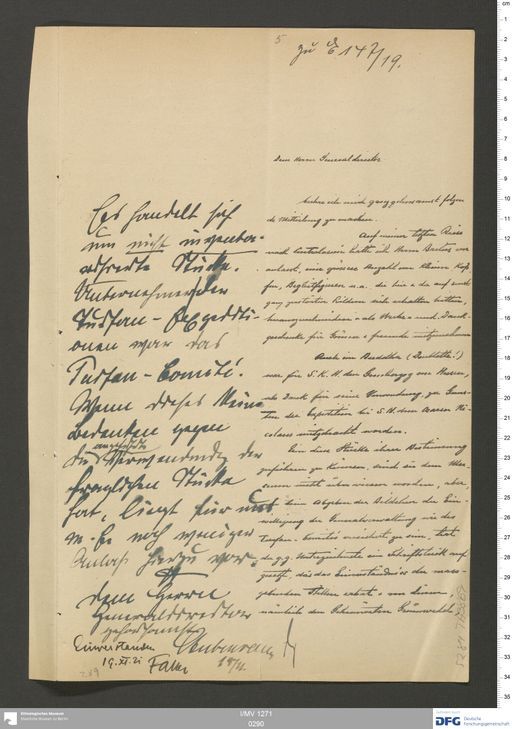 5
zu E 147/19.
Dem Herrn Generaldirector
beehre ich mich ganz gehorsamst folgen
de Mitteilung zu machen.
Auf meiner letzten Reise
nach Centralasien hatte ich Herrn Bartus ver
anlasst, eine grössere Anzahl von kleinen Köp
fen, Begleitfiguren u.a. die hie & da auf
ganz zerstörten Bildern sich erhalten hatten,
herauszuschneiden & als Andenken und Dank
geschenke für Gönner & Freunde mitzunehmen
Auch ein Buddha (Dublette!)
war für S. K. H. den Grossherzog von Hessen,
als Dank für seine Verwendung zu Guns
ten der Expedition bei S. M. dem Kaiser Ni
colaus mitgebracht worden.
Um diese Stücke ihrer Bestimmung
zuführen zu können, sind sie dem Mu
seum nicht überwiesen worden, aber,
um beim Abgeben der Bildchen der Ein
willigung der Generalverwaltung wie des
Turfan-Comités versichert zu sein, hat
der g.g. Unterzeichnete ein Schriftstück auf
gesetzt, das das Einverständnis der mass
gebenden Stellen erbat & von diesen,
nämlich dem Geheimraten Grünwedel
Es handelt sich
um nicht inventa-
risierte Stücke.
Unternehmer der
Turfan-Expediti-
onen war das
Turfan-Comité.
Wenn dieses keine
Bedenken gegen
die Verwendung der
fraglichen Stücke
hat, liegt für uns
m. E. noch weniger
Anlass hierzu vor.
Dem Herrn
Generaldirektor
gehorsamst
Einverstanden
19. XI. 21
Falke
289
I/MV 1271
0290
Ethnologisches Museum
Staatliche Museen zu Berlin
Gefördert durch
DFG Deutsche
Forschungsgemeinschaft